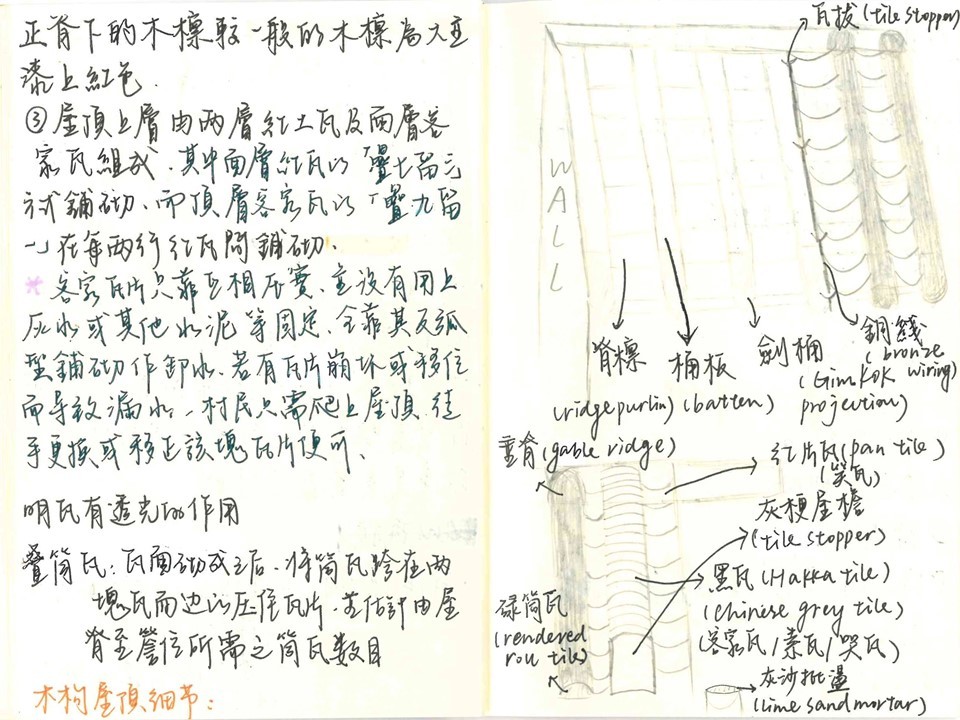 正脊下的木檩較一般的木檩為大並
漆上紅色.
③屋頂上層由兩層紅土瓦及面層客
家瓦組成.其中面層紅瓦以「疊七留三」
式鋪砌、而頂層客家瓦以「疊九留
一」在每兩行紅瓦間鋪砌.
* 客家瓦片只靠互相压實、並没有用上
灰水或其他水泥等固定.全靠其反弧
型鋪砌作卸水.若有瓦片崩坏或移位
而导致漏水.村民只需爬上屋頂.徒
手更换或移正該塊瓦片便可、
明瓦有透光的作用
疊筒瓦:瓦面砌成之后.將筒瓦跨在两
塊瓦而边以压住瓦片.並估計由屋
脊至簷位所需之筒瓦数目
木构屋頂細节:
瓦拔(tile stopper)
WALL
脊檩
(ridge purlin)
桷板
(batten)
劍桷
(Gim Kok
projection)
銅綫
(bronze
wiring)
垂脊(gable ridge)
红片瓦(pan tile)
(笑瓦)
灰梗屋檐
(tile stopper)
黑瓦(Hakka tile)
(Chinese grey tile)
(客家瓦/素瓦/哭瓦)
碌筒瓦
(rendered
roll tile)
灰沙批盪
(lime sand mortar)